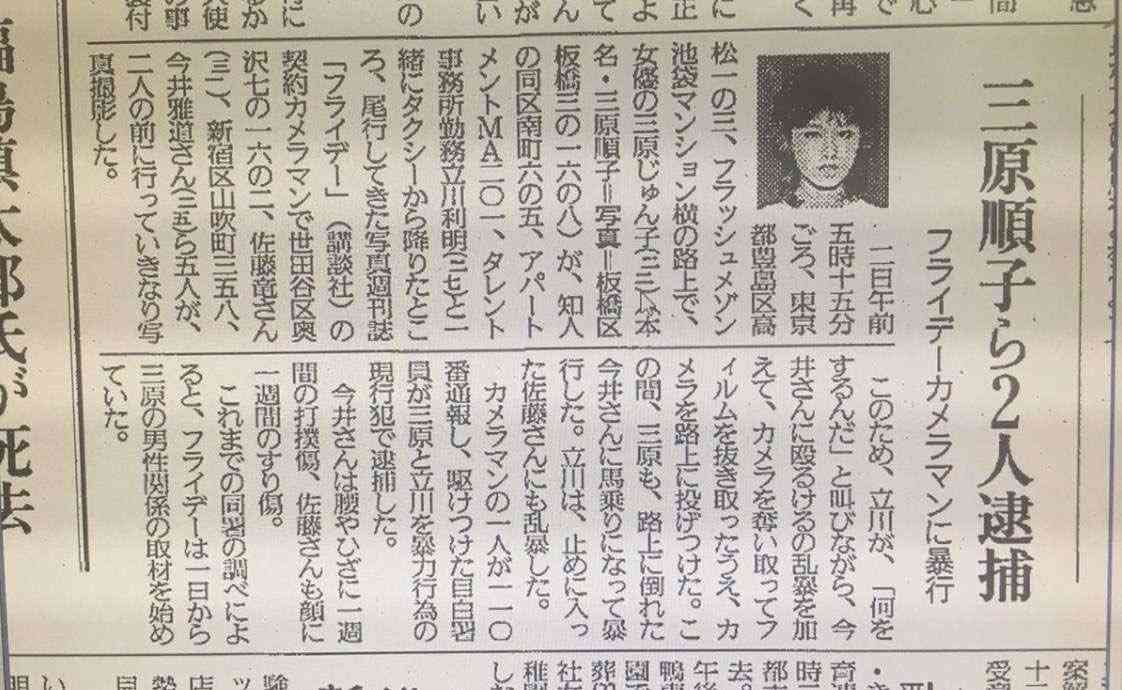 三原順子ら2人逮捕
フライデーカメラマンに暴行
二日午前
五時十五分
ごろ、東京
都豊島区高
松一の三、フラッシュメゾン
池袋マンション横の路上で、
女優の三原じゅん子(二二)＝本
名・三原順子＝写真＝板橋区
板橋三の一六の八)が、知人
の同区南町六の五、アパート
メントMA二〇一、タレント
事務所勤務立川利明(二七)と一
緒にタクシーから降りたとこ
ろ、尾行してきた写真週刊誌
「フライデー」(講談社)の
契約カメラマンで世田谷区奥
沢七の一六の二、佐藤竜さん
(三二)、新宿区山吹町三五八、
今井雅道さん(三五)ら五人が、
二人の前に行っていきなり写
真撮影した。
このため、立川が、「何を
するんだ」と叫びながら、今
井さんに殴るけるの乱暴を加
えて、カメラを奪い取ってフ
ィルムを抜き取ったうえ、カ
メラを路上に投げつけた。こ
の間、三原も、路上に倒れた
今井さんに馬乗りになって暴
行した。立川は、止めに入っ
た佐藤さんにも乱暴した。
カメラマンの一人が一一〇
番通報し、駆けつけた目白署
員が三原と立川を暴力行為の
現行犯で逮捕した。
今井さんは腰やひざに一週
間の打撲傷、佐藤さんも顔に
一週間のすり傷。
これまでの同署の調べによ
ると、フライデーは一日から
三原の男性関係の取材を始め
ていた。
太郎氏が死去